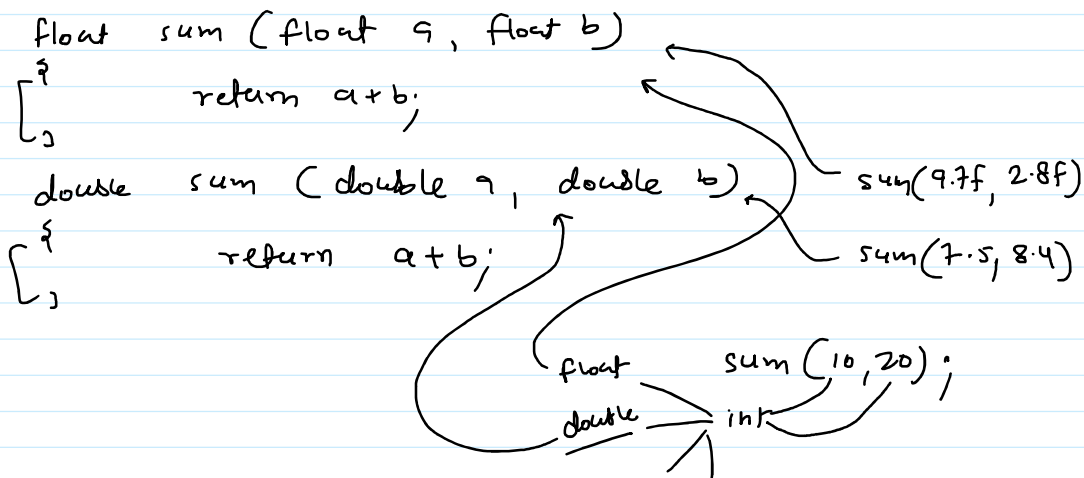 float sum (float a, float b)
{
return a+b;
}
sum(9.7f, 2.8f)
double sum (double a, double b)
{
return a+b;
}
sum(7.5, 8.4)
float sum (10,20);
double int